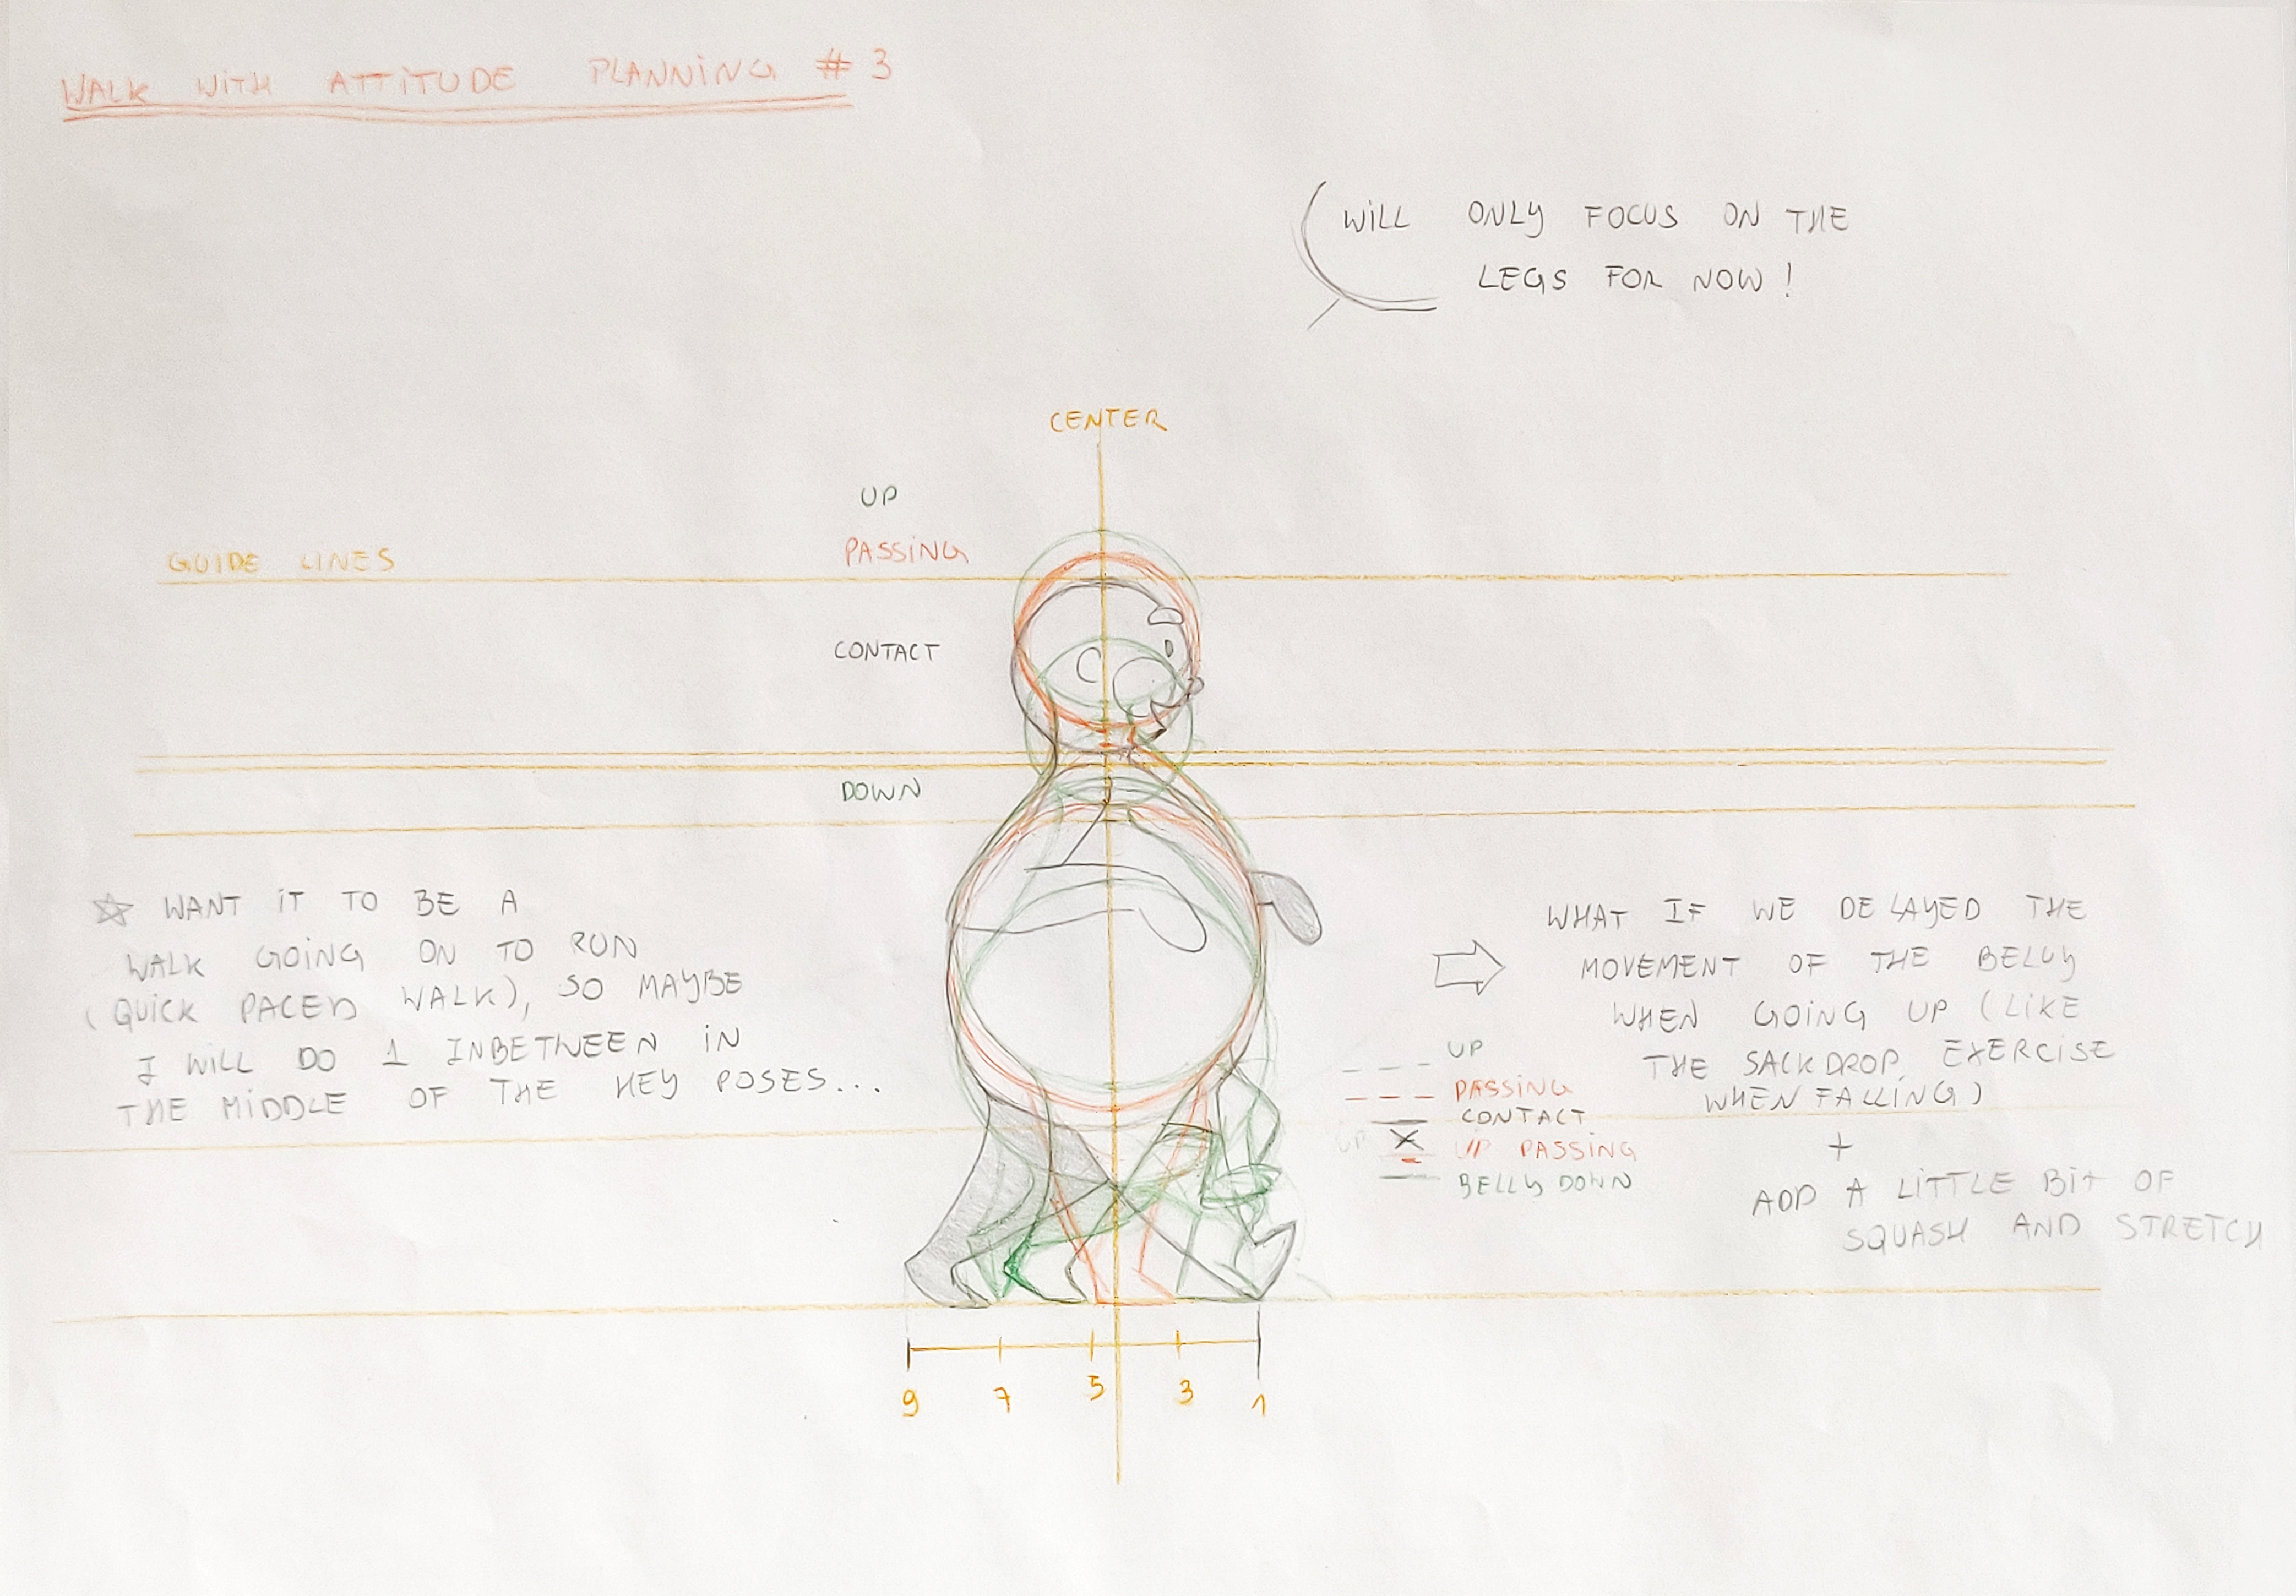 WALK WITH ATTITUDE PLANNING # 3
WILL ONLY FOCUS ON THE
LEGS FOR NOW !
CENTER
UP
PASSING
GUIDE LINES
CONTACT
DOWN
WANT IT TO BE A
WALK GOING ON TO RUN
(QUICK PACED WALK), SO MAYBE
I WILL DO 1 INBETWEEN IN
THE MIDDLE OF THE KEY POSES...
WHAT IF WE DELAYED THE
MOVEMENT OF THE BELLY
WHEN GOING UP (LIKE
THE SACKDROP EXERCISE
WHEN FALLING)
+
ADD A LITTLE BIT OF
SQUASH AND STRETCH
UP
PASSING
CONTACT
UP X UP PASSING
BELLY DOWN
9 7 5 3 1